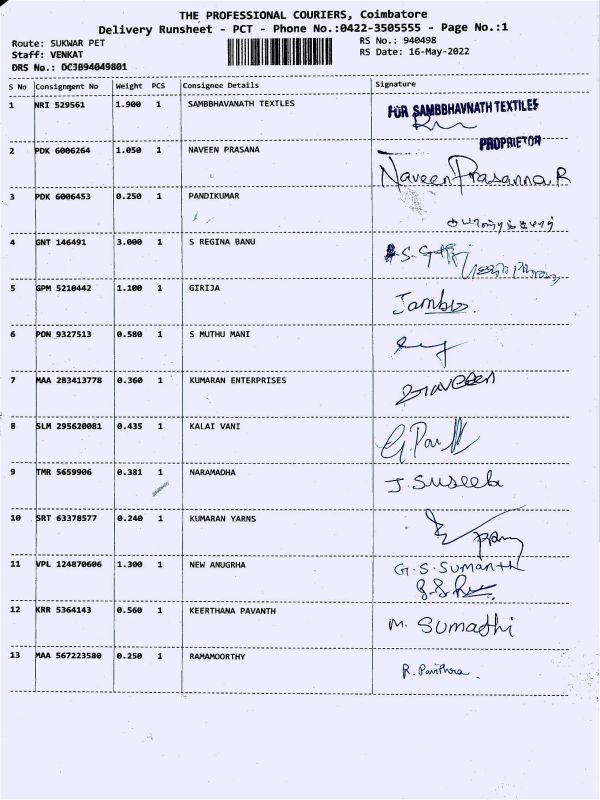 THE PROFESSIONAL COURIERS, Coimbatore
Delivery Runsheet - PCT - Phone No.:0422-3505555 - Page No.:1
Route: SUKWAR PET RS No.: 940498
Staff: VENKAT RS Date: 16-May-2022
DRS No.: DCJB94049801
S No Consignment No Weight PCS Consignee Details Signature
1 NRI 529561 1.900 1 SAMBBHAVANATH TEXTLES FOR SAMBBHAVNATH TEXTILES
PROPRIETOR
2 PDK 6006264 1.050 1 NAVEEN PRASANA Naveen Prasanna.R
3 PDK 6006453 0.250 1 PANDIKUMAR
4 GNT 146491 3.000 1 S REGINA BANU
5 GPM 5210442 1.100 1 GIRIJA
6 PON 9327513 0.580 1 S MUTHU MANI
7 MAA 283413778 0.360 1 KUMARAN ENTERPRISES
8 SLM 295620081 0.435 1 KALAI VANI
9 TMR 5659906 0.381 1 NARAMADHA J. Suseela
10 SRT 63378577 0.240 1 KUMARAN YARNS
11 VPL 124870606 1.300 1 NEW ANUGRHA G.S.Sumanth
12 KRR 5364143 0.560 1 KEERTHANA PAVANTH M. Sumathi
13 MAA 567223580 0.250 1 RAMAMOORTHY R. Pavithra